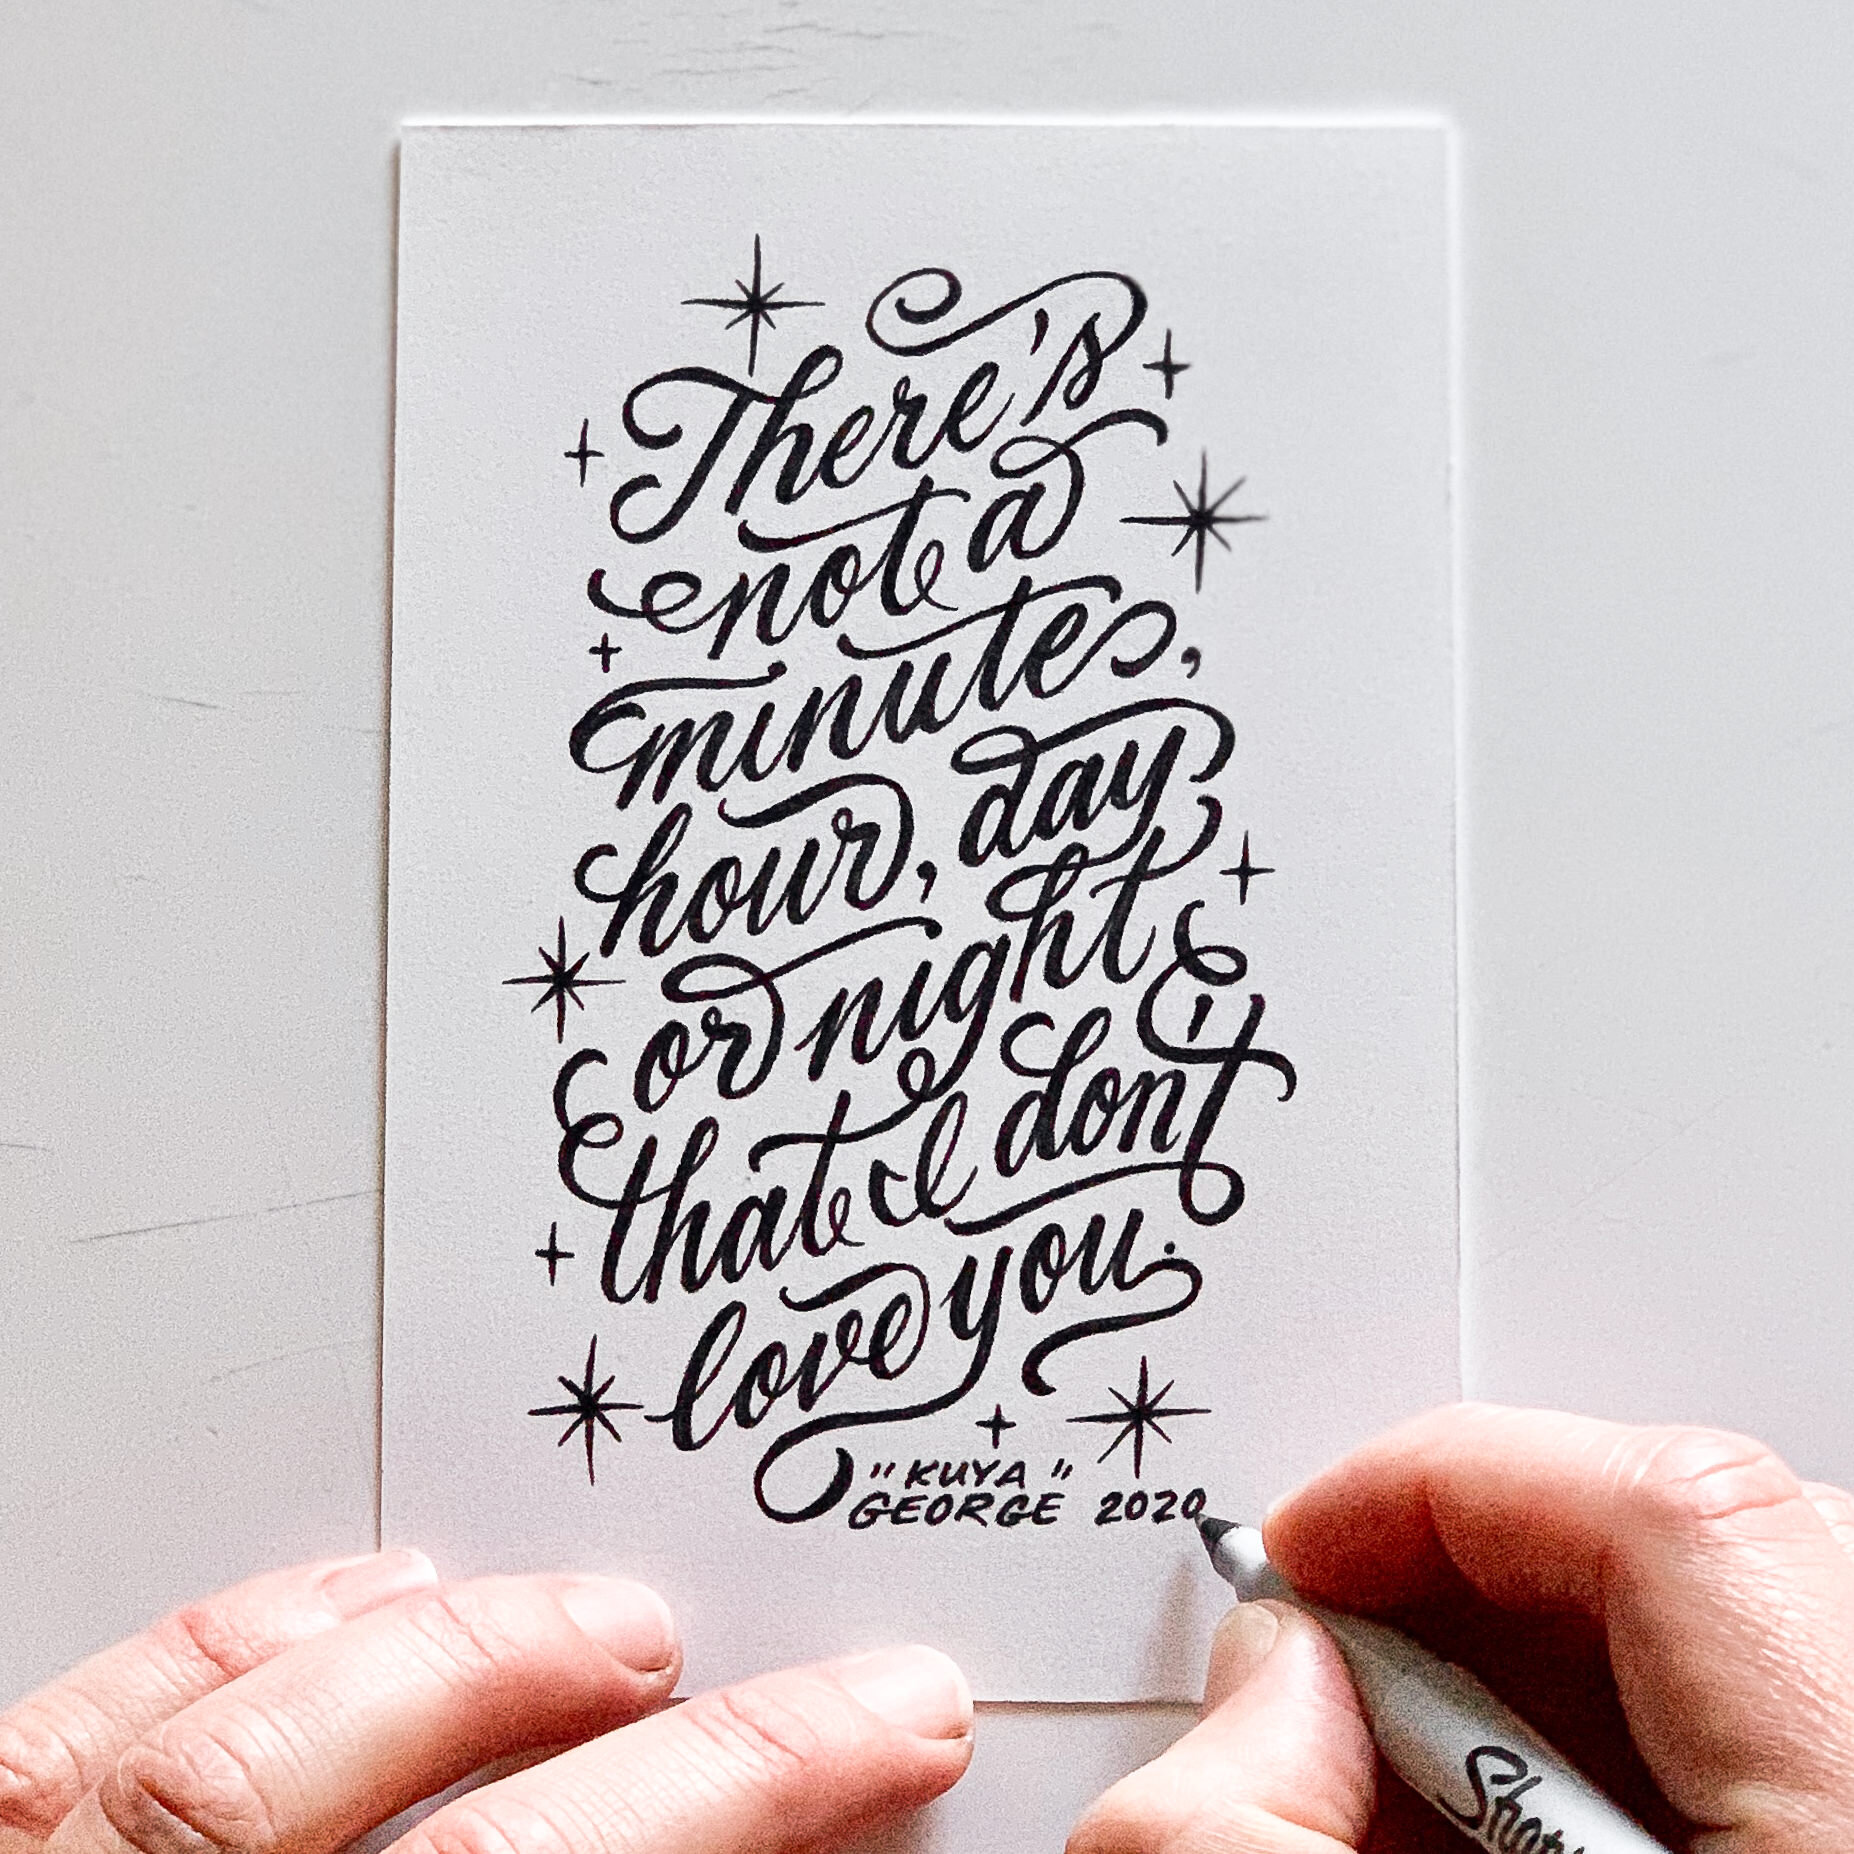 There's
not a
minute,
hour, day,
or night
that I don't
love you.
"KUYA"
GEORGE 2020